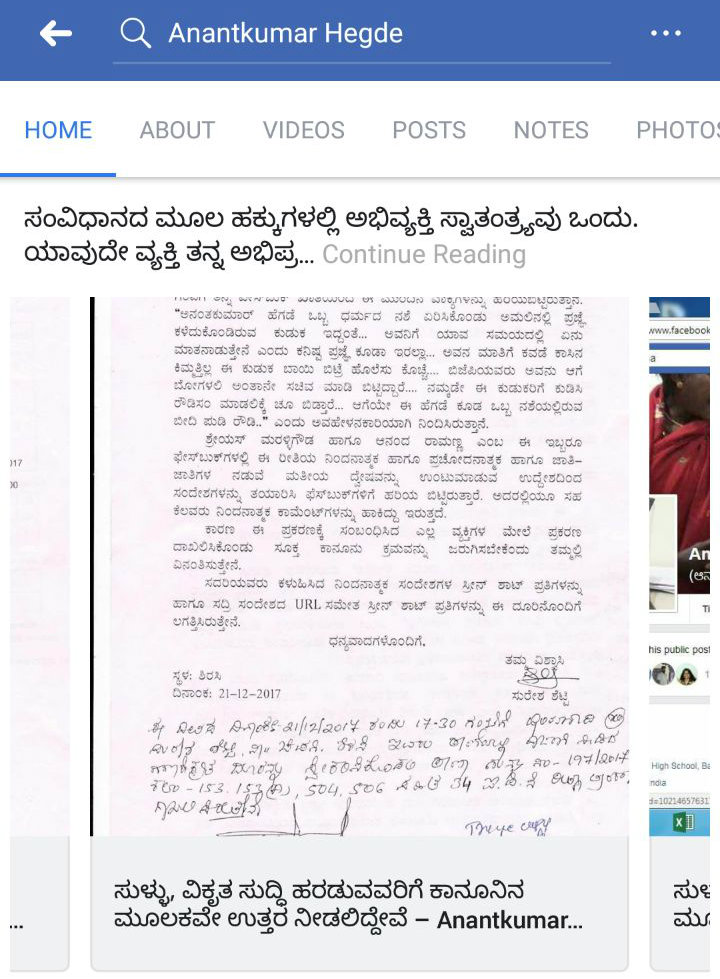 Anantkumar Hegde
HOME ABOUT VIDEOS POSTS NOTES PHOTOS
ಸಂವಿಧಾನದ ಮೂಲ ಹಕ್ಕುಗಳಲ್ಲಿ ಅಭಿವ್ಯಕ್ತಿ ಸ್ವಾತಂತ್ರ್ಯವು ಒಂದು.
ಯಾವುದೇ ವ್ಯಕ್ತಿ ತನ್ನ ಅಭಿಪ್ರ... Continue Reading
"ಅನಂತಕುಮಾರ್ ಹೆಗಡೆ ಒಬ್ಬ ಧರ್ಮದ ನಶೆ ಏರಿಸಿಕೊಂಡು ಅಮಲಿನಲ್ಲಿ ಪ್ರಜ್ಞೆ
ಕಳೆದುಕೊಂಡಿರುವ ಕುಡುಕ ಇದ್ದಂತೆ... ಅವನಿಗೆ ಯಾವ ಸಮಯದಲ್ಲಿ ಏನು
ಮಾತನಾಡುತ್ತೇನೆ ಎಂದು ಕನಿಷ್ಠ ಪ್ರಜ್ಞೆ ಕೂಡಾ ಇರಲ್ಲಾ... ಅವನ ಮಾತಿಗೆ ಕವಡೆ ಕಾಸಿನ
ಕಿಮ್ಮತ್ತಿಲ್ಲ ಈ ಕುಡುಕ ಬಾಯಿ ಬಿಟ್ರೆ ಹೊಲೆಸು ಕೊಚ್ಚೆ.... ಬಿಜೆಪಿಯವರು ಅವನು ಆಗೆ
ಬೋಗಳಲಿ ಅಂತಾನೇ ಸಚಿವ ಮಾಡಿ ಬಿಟ್ಟಿದ್ದಾರೆ.... ನಮ್ಮಡೇ ಈ ಕುಡುಕರಿಗೆ ಕುಡಿಸಿ
ರೌಡಿಸಂ ಮಾಡಲಿಕ್ಕೆ ಚೂ ಬಿಡ್ತಾರೆ... ಆಗೆಯೇ ಈ ಹೆಗಡೆ ಕೂಡ ಒಬ್ಬ ನಶೆಯಲ್ಲಿರುವ
ಬೀದಿ ಪುಡಿ ರೌಡಿ.." ಎಂದು ಅವಹೇಳನಕಾರಿಯಾಗಿ ನಿಂದಿಸಿರುತ್ತಾನೆ.
ಶ್ರೇಯಸ್ ಮರಳ್ಳಿಗೌಡ ಹಾಗೂ ಆನಂದ ರಾಮಣ್ಣ ಎಂಬ ಈ ಇಬ್ಬರೂ
ಫೇಸ್‌ಬುಕ್‌ಗಳಲ್ಲಿ ಈ ರೀತಿಯ ನಿಂದನಾತ್ಮಕ ಹಾಗೂ ಪ್ರಚೋದನಾತ್ಮಕ ಹಾಗೂ ಜಾತಿ-
ಜಾತಿಗಳ ನಡುವೆ ಮತೀಯ ದ್ವೇಷವನ್ನು ಉಂಟುಮಾಡುವ ಉದ್ದೇಶದಿಂದ
ಸಂದೇಶಗಳನ್ನು ತಯಾರಿಸಿ ಫೆಸ್‌ಬುಕ್‌ಗಳಿಗೆ ಹರಿಯ ಬಿಟ್ಟಿರುತ್ತಾರೆ. ಅದರಲ್ಲಿಯೂ ಸಹ
ಕೆಲವರು ನಿಂದನಾತ್ಮಕ ಕಾಮೆಂಟ್‌ಗಳನ್ನು ಹಾಕಿದ್ದು ಇರುತ್ತದೆ.
ಕಾರಣ ಈ ಪ್ರಕರಣಕ್ಕೆ ಸಂಬಂಧಿಸಿದ ಎಲ್ಲ ವ್ಯಕ್ತಿಗಳ ಮೇಲೆ ಪ್ರಕರಣ
ದಾಖಲಿಸಿಕೊಂಡು ಸೂಕ್ತ ಕಾನೂನು ಕ್ರಮವನ್ನು ಜರುಗಿಸಬೇಕೆಂದು ತಮ್ಮಲ್ಲಿ
ವಿನಂತಿಸುತ್ತೇನೆ.
ಸದರಿಯವರು ಕಳುಹಿಸಿದ ನಿಂದನಾತ್ಮಕ ಸಂದೇಶಗಳ ಸ್ಕ್ರೀನ್ ಶಾಟ್ ಪ್ರತಿಗಳನ್ನು
ಹಾಗೂ ಸದ್ರಿ ಸಂದೇಶದ URL ಸಮೇತ ಸ್ಕ್ರೀನ್ ಶಾಟ್ ಪ್ರತಿಗಳನ್ನು ಈ ದೂರಿನೊಂದಿಗೆ
ಲಗತ್ತಿಸಿರುತ್ತೇನೆ.
ಧನ್ಯವಾದಗಳೊಂದಿಗೆ,
ತಮ್ಮ ವಿಶ್ವಾಸಿ
ಸ್ಥಳ: ಶಿರಸಿ
ದಿನಾಂಕ: 21-12-2017
ಸುರೇಶ ಶೆಟ್ಟಿ
True copy
www.facebook
his public post
High School, Ba
ndia
d=1021465763
ಸುಳ್ಳು, ವಿಕೃತ ಸುದ್ಧಿ ಹರಡುವವರಿಗೆ ಕಾನೂನಿನ
ಮೂಲಕವೇ ಉತ್ತರ ನೀಡಲಿದ್ದೇವೆ – Anantkumar...